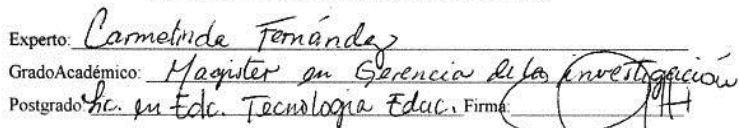 Experto: Carmelinda Fernández
GradoAcadémico: Magister en Gerencia de las investigación
Postgrado Lic. en Edc. Tecnologia Educ. Firma: